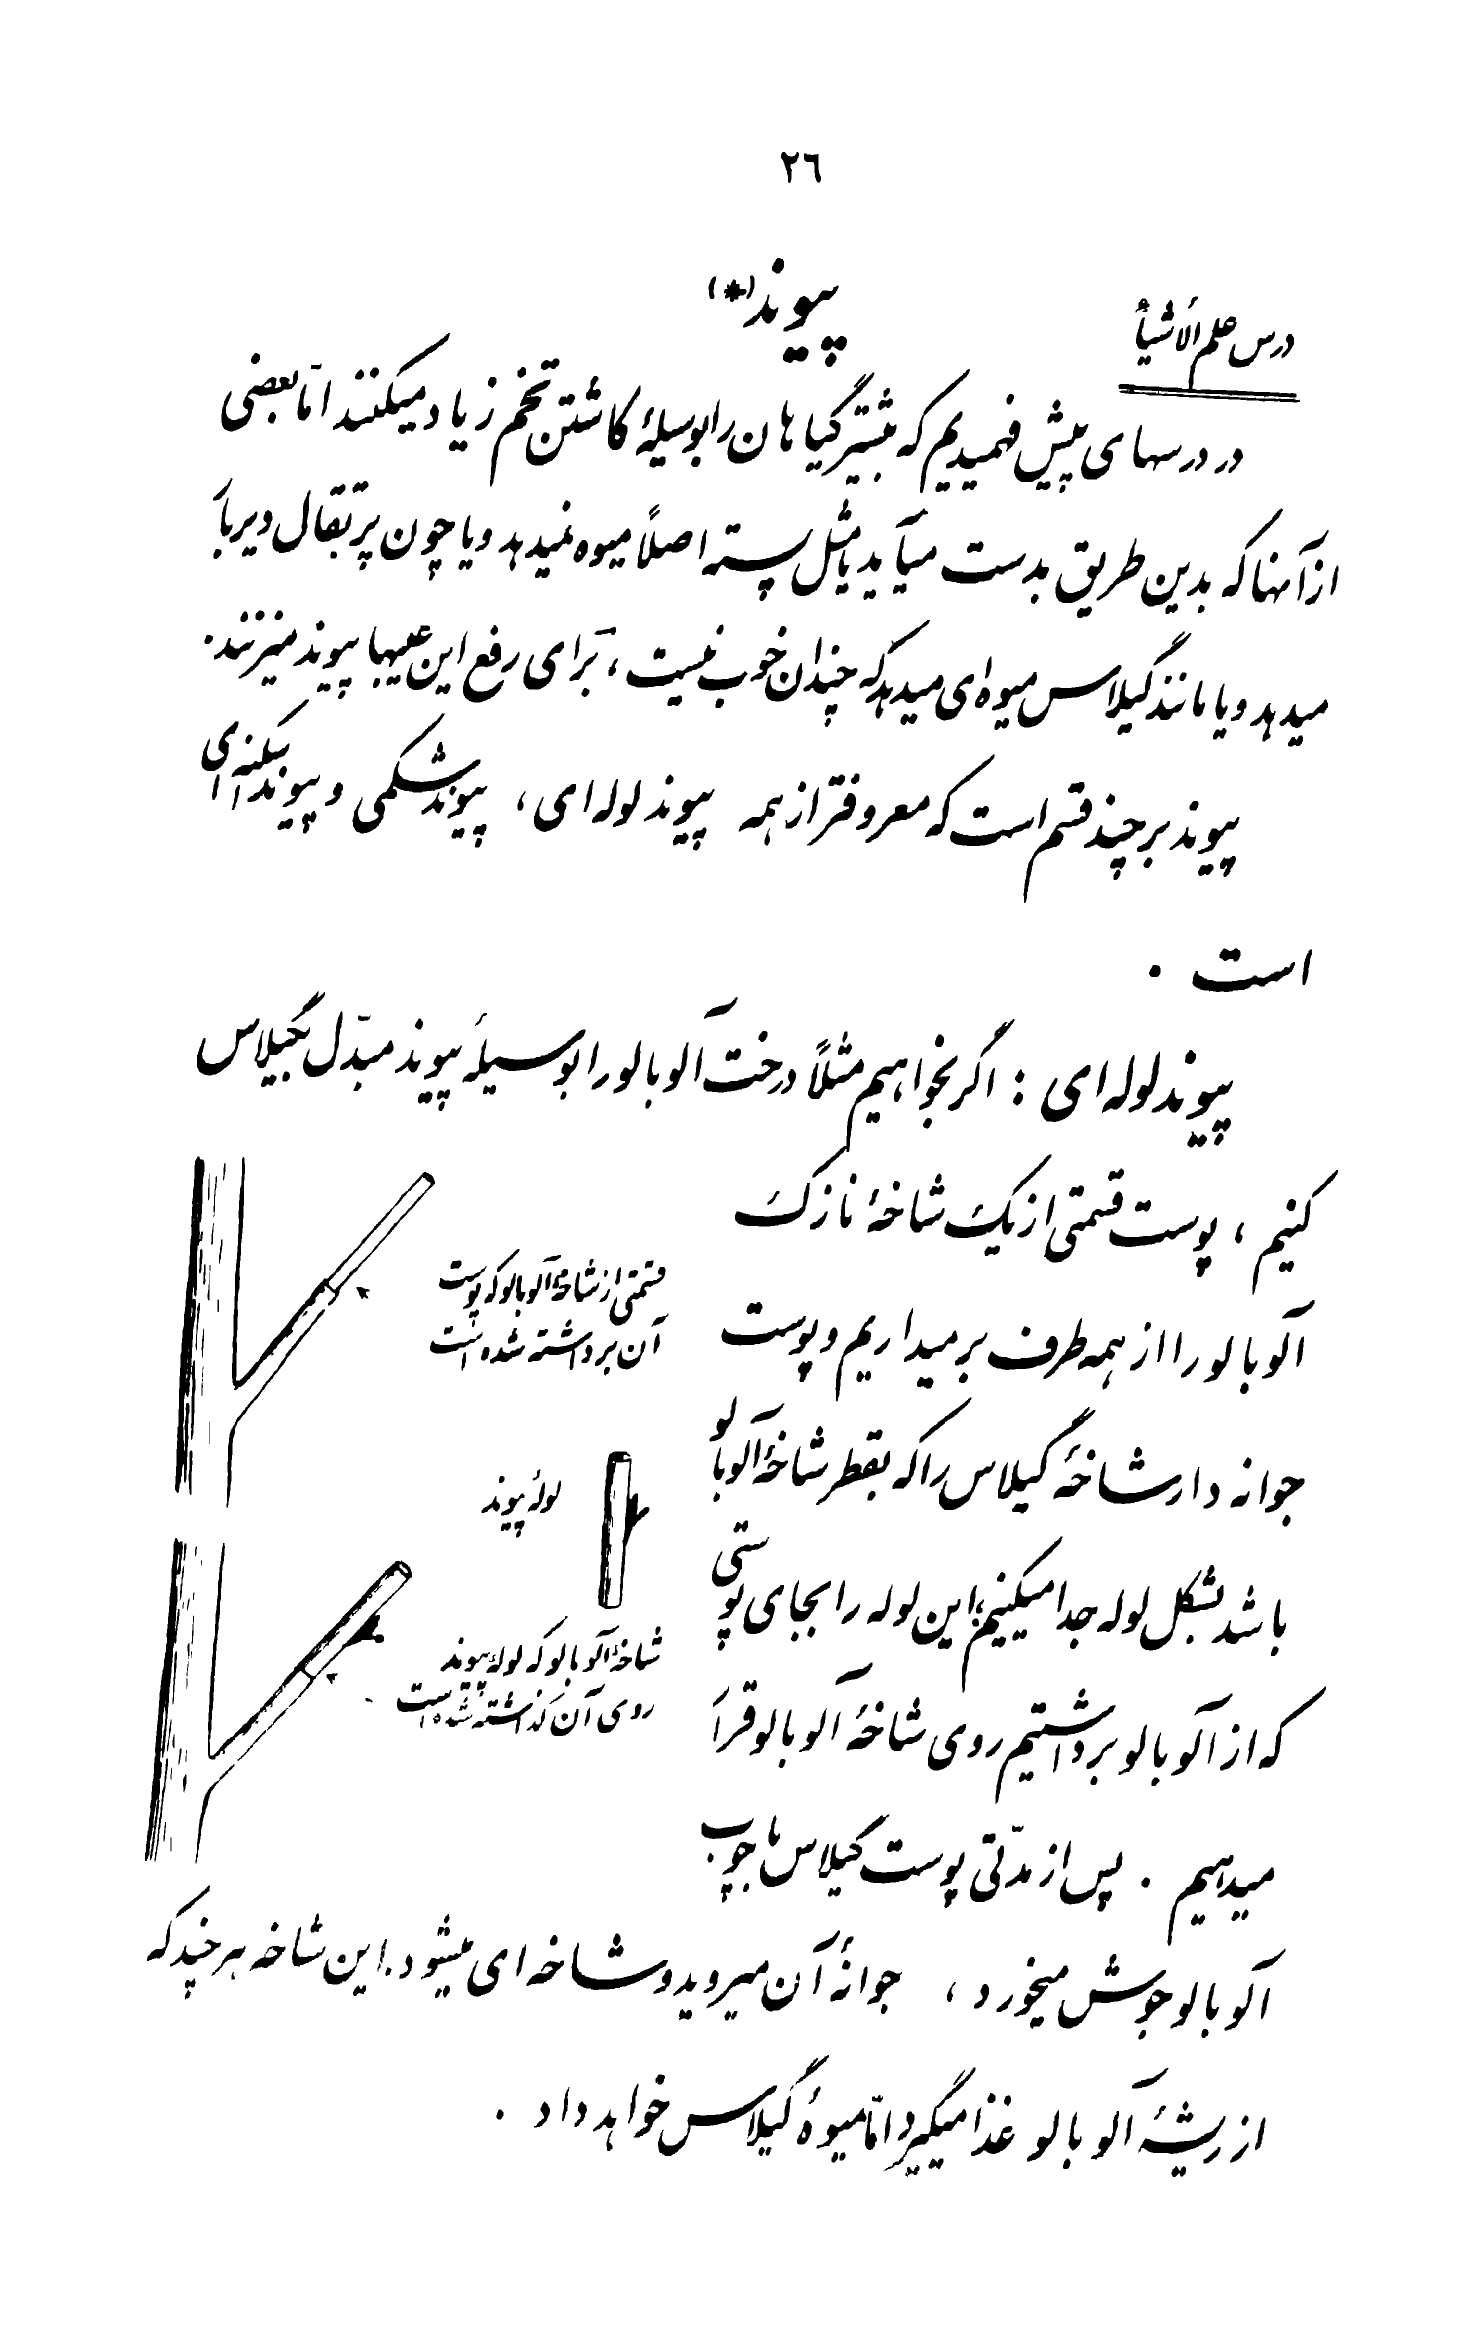 ٢٦
درس علم الأشیاء
پیوند (*)
در درسهای پیش فهمیدیم که بیشتر گیاهان را بوسیلهٔ کاشتن تخم زیاد میکنند امّا بعضی
از آنها که بدین طریق بدست میآید یا مثل پسته اصلاً میوه نمیدهد ویا چون پرتقال دیر بار
میدهد ویا مانند گیلاس میوه‌ای میدهد که چندان خوب نیست ، برای رفع این عیبها پیوند میزنند.
پیوند بر چند قسم است که معروفتر از همه پیوند لوله‌ای ، پیوند شکمی و پیوند اسکنه‌ای
است .
پیوند لوله‌ای : اگر بخواهیم مثلاً درخت آلوبالو را بوسیلهٔ پیوند مبدّل بگیلاس
کنیم ، پوست قسمتی از یک شاخهٔ نازک
آلوبالو را از همه طرف برمیداریم و پوست
جوانه دار شاخهٔ گیلاس را که بقطر شاخهٔ آلوبالو
باشد بشکل لوله جدا میکنیم ؛ این لوله را بجای پوستی
که از آلوبالو برداشتیم روی شاخهٔ آلوبالو قرار
میدهیم . پس از مدّتی پوست گیلاس با چوب
آلوبالو جوش میخورد ، جوانهٔ آن میروید و شاخه‌ای میشود. این شاخه هر چند که
از ریشهٔ آلوبالو غذا میگیرد امّا میوهٔ گیلاس خواهد داد .
قسمتی از شاخهٔ آلوبالو که پوست
آن برداشته شده است
لولهٔ پیوند
شاخهٔ آلوبالو که لولهٔ پیوند
روی آن گذاشته شده است